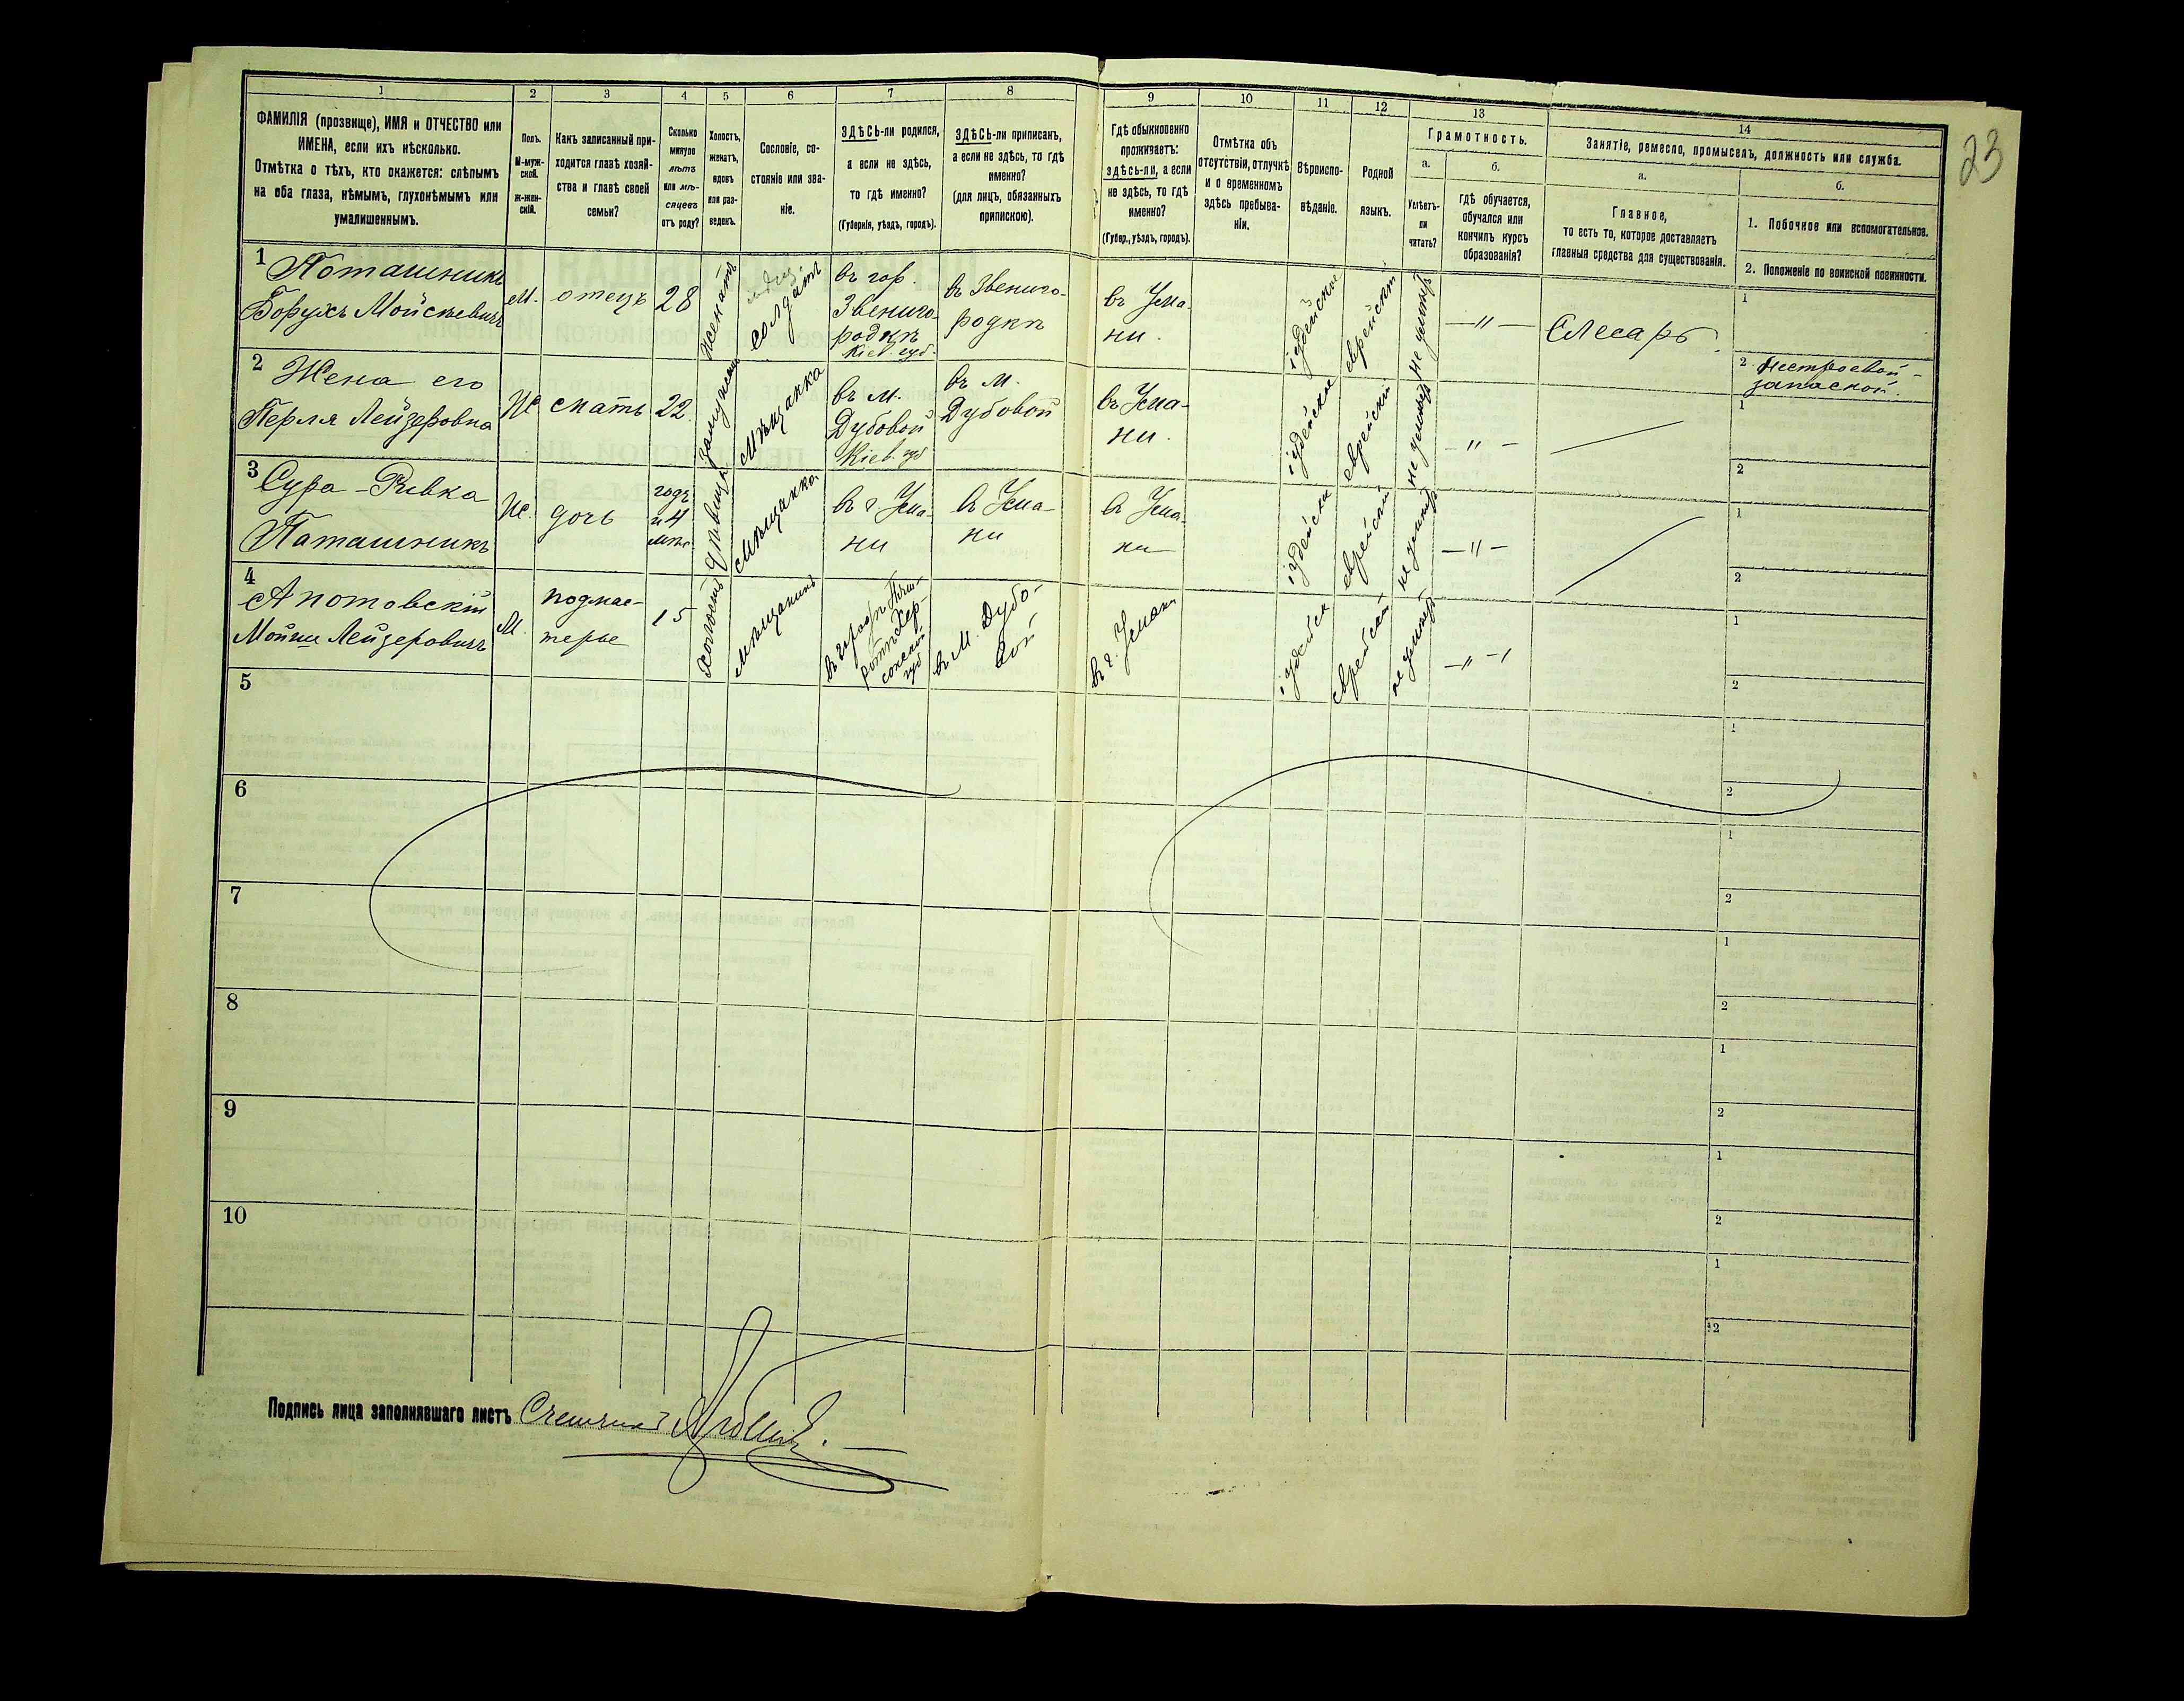 23
1
2
3
4
5
6
7
8
9
10
11
12
13
14
ФАМИЛІЯ (прозвище), ИМЯ и ОТЧЕСТВО или
ИМЕНА, если ихъ нѣсколько.
Отмѣтка о тѣхъ, кто окажется: слѣпымъ
на оба глаза, нѣмымъ, глухонѣмымъ или
умалишеннымъ.
Полъ.
М-муж-
ской.
Ж-жен-
скій.
Какъ записанный при-
ходится главѣ хозяй-
ства и главѣ своей
семьи?
Сколько
минуло
лѣтъ
или мѣ-
сяцевъ
отъ роду?
Холостъ,
женатъ,
вдовъ
или раз-
веденъ.
Сословіе, со-
стояніе или зва-
ніе.
ЗДѢСЬ-ли родился,
а если не здѣсь,
то гдѣ именно?
(Губернія, уѣздъ, городъ).
ЗДѢСЬ-ли приписанъ,
а если не здѣсь, то гдѣ
именно?
(для лицъ, обязанныхъ
припискою).
Гдѣ обыкновенно
проживаетъ:
здѣсь-ли, а если
не здѣсь, то гдѣ
именно?
(Губер., уѣздъ, городъ).
Отмѣтка объ
отсутствіи, отлучкѣ
и о временномъ
здѣсь пребыва-
ніи.
Вѣроиспо-
вѣданіе.
Родной
языкъ.
Грамотность.
а.
Умѣетъ-
ли
читать?
б.
гдѣ обучается,
обучался или
кончилъ курсъ
образованія?
Занятіе, ремесло, промыселъ, должность или служба.
а.
Главное,
то есть то, которое доставляетъ
главныя средства для существованія.
б.
1. Побочное или вспомогательное.
2. Положеніе по воинской повинности.
1
Поташникъ
Борухъ Мойсѣевичъ
М.
отецъ
28
женатъ
солдатъ
въ гор.
Звениго-
родкѣ
Кіев. губ.
въ Звениго-
родкѣ
въ Ума-
ни.
іудейское
еврейскій
не умѣетъ
— " —
Слесарь.
1
2 нестроевой-
запасной.
2
Жена его
Перля Лейзеровна
Ж
мать
22.
замужемъ
мѣщанка
въ м.
Дубовой
Кіев. губ
въ м.
Дубовой
въ Ума-
ни.
іудейское
еврейскій
не умѣетъ
- " -
1
2
3
Сура-Ривка
Поташникъ
Ж.
дочь
годъ
и 4
мѣс.
дѣвица
мѣщанка
въ г. Ума-
ни
въ Ума-
ни
въ Ума-
ни
іудейск
еврейскій
не умѣетъ
— " —
1
2
4
Апотовскій
Мойше Лейзеровичъ
М.
подмас-
терье
15
холостъ
мѣщанинъ
въ м. Дубо-
вой
въ г. Умани
іудейск
еврейскій
не умѣетъ
— " —
1
2
5
1
2
6
1
2
7
1
2
8
1
2
9
1
2
10
1
2
Подпись лица заполнявшаго листъ Счетчикъ